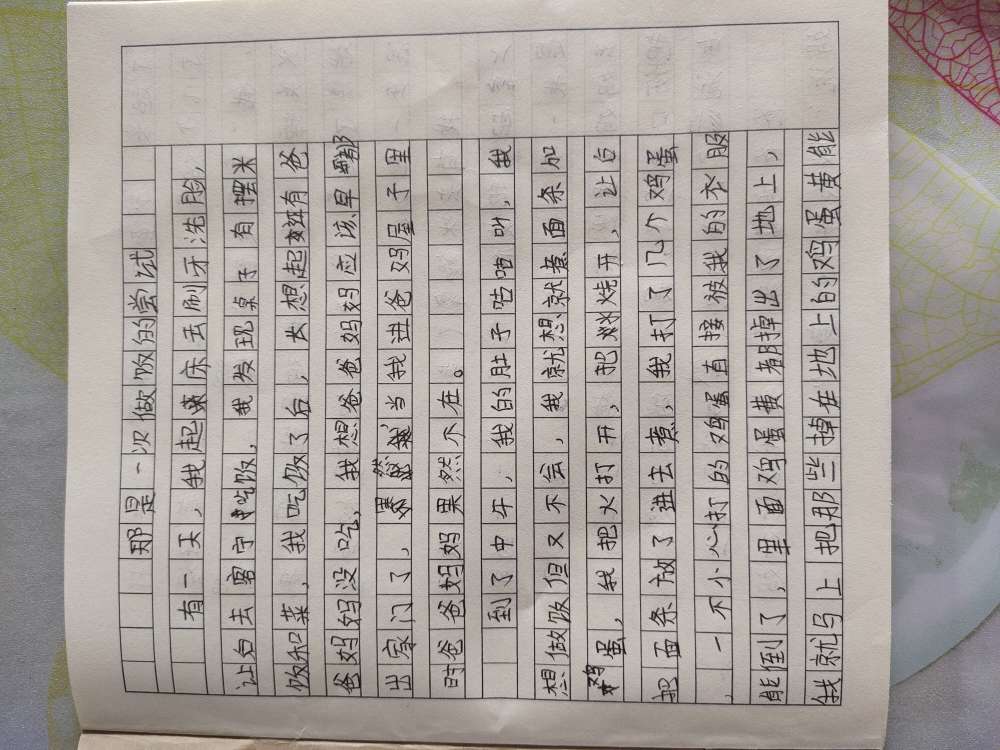 那是一次做饭的尝试
有一天，我起来床去刷牙洗脸，
让后去客厅吃饭，我发现桌子有摆米
饭和菜，我吃饭了后，大想起妈有爸
爸妈妈没吃，我想爸爸妈妈应该早都
出家门了，果然我当我进爸妈屋子里
时爸爸妈妈果然不在。
到了中午，我的肚子咕咕叫，我
想做饭但又不会，我就想就煮面条加
鸡蛋，我把火打开，把水烧开，让后
把面条放了进去煮，我打了几个鸡蛋
，一不小心打的鸡蛋直接被我的衣服
能倒了，里面鸡蛋黄都掉出了地上，
我就马上把那些掉在地上的鸡蛋黄能